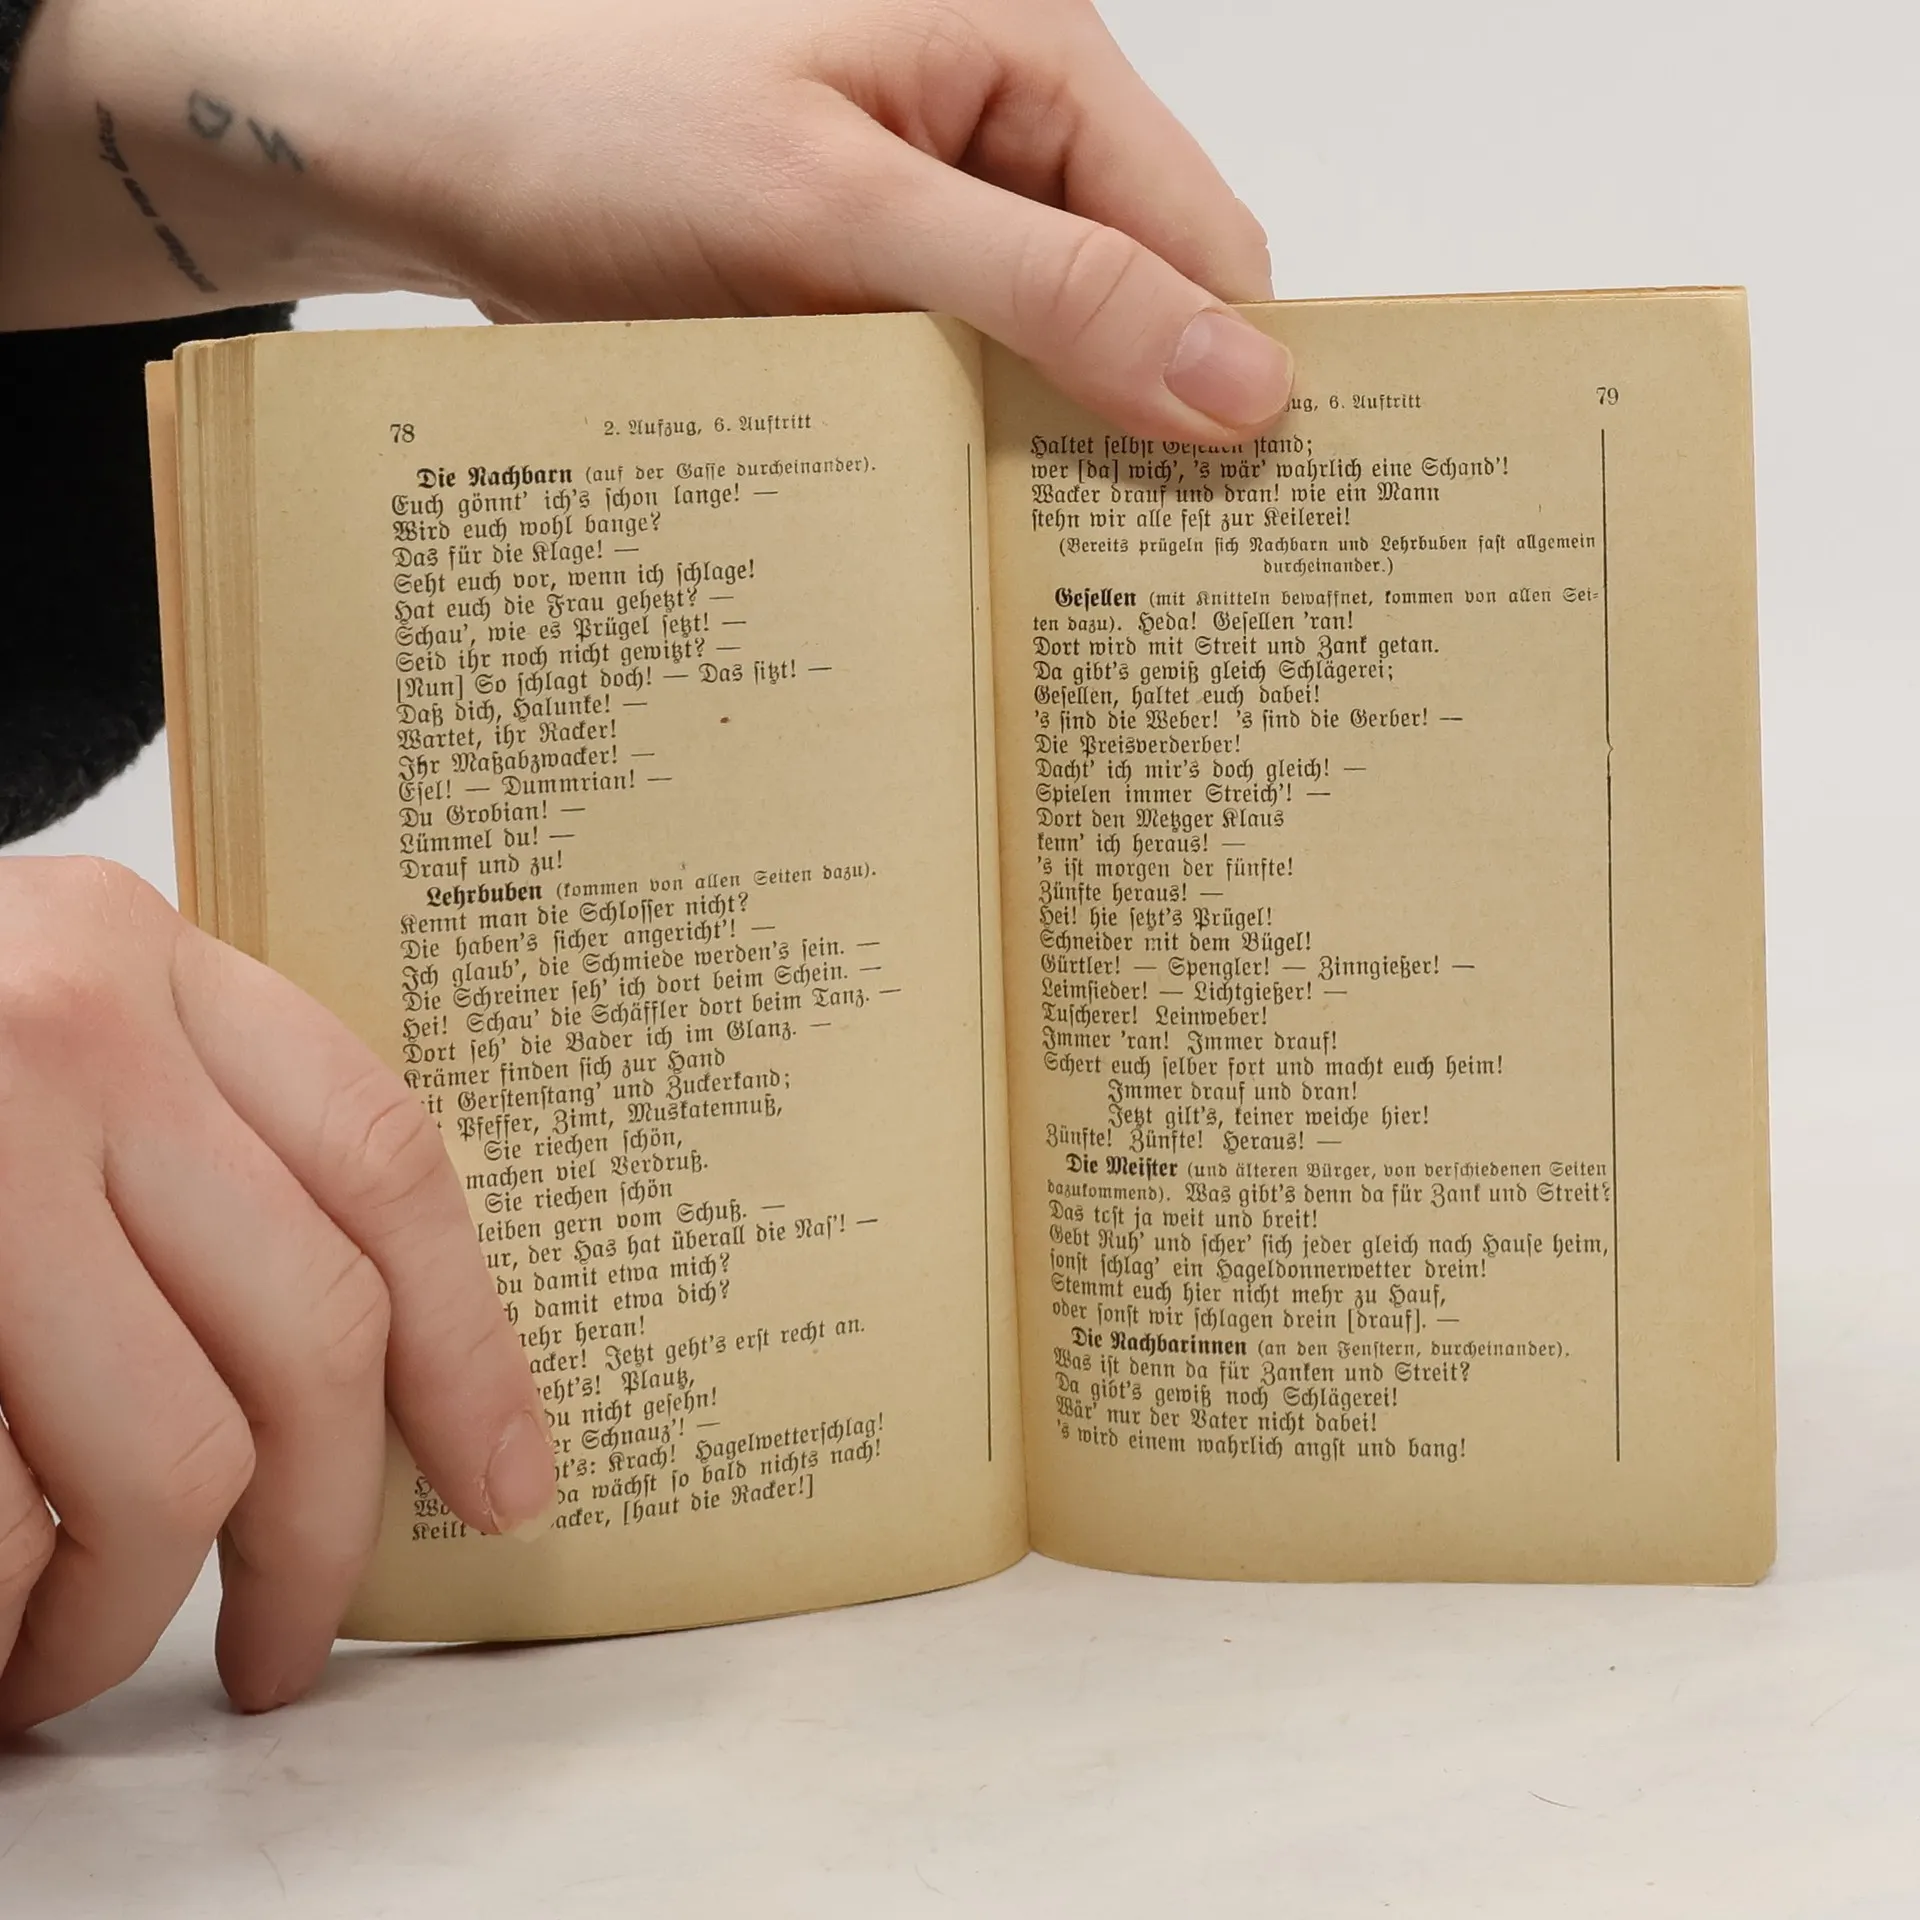 78
2. Aufzug, 6. Auftritt
Die Nachbarn (auf der Gasse durcheinander).
Euch gönnt' ich's schon lange! —
Wird euch wohl bange?
Das für die Klage! —
Seht euch vor, wenn ich schlage!
Hat euch die Frau gehetzt? —
Schau', wie es Prügel setzt! —
Seid ihr noch nicht gewitzt? —
[Nun] So schlagt doch! — Das sitzt! —
Daß dich, Halunke! —
Wartet, ihr Racker!
Ihr Maßabzwacker! —
Esel! — Dummrian! —
Du Grobian! —
Lümmel du! —
Drauf und zu!
Lehrbuben (kommen von allen Seiten dazu).
Kennt man die Schlosser nicht?
Die haben's sicher angericht'! —
Ich glaub', die Schmiede werden's sein. —
Die Schreiner seh' ich dort beim Schein. —
Hei! Schau' die Schäffler dort beim Tanz. —
Dort seh' die Bader ich im Glanz. —
Krämer finden sich zur Hand
Gerstenstang' und Zuckerkand;
Pfeffer, Zimt, Muskatennuß,
Sie riechen schön,
machen viel Verdruß.
Sie riechen schön
gern vom Schuß. —
der Has hat überall die Nas'! —
du damit etwa mich?
damit etwa dich?
heran!
Jetzt geht's erst recht an.
Plautz,
du nicht gesehn!
Schnauz'! —
Krach! Hagelwetterschlag!
wächst so bald nichts nach!
Keilt [haut die Racker!]
79
6. Auftritt
Haltet selbst Gesellen stand;
wer [da] wich', 's wär' wahrlich eine Schand'!
Wacker drauf und dran! wie ein Mann
stehn wir alle fest zur Keilerei!
(Bereits prügeln sich Nachbarn und Lehrbuben fast allgemein
durcheinander.)
Gesellen (mit Knitteln bewaffnet, kommen von allen Sei-
ten dazu). Heda! Gesellen 'ran!
Dort wird mit Streit und Zank getan.
Da gibt's gewiß gleich Schlägerei;
Gesellen, haltet euch dabei!
's sind die Weber! 's sind die Gerber! —
Die Preisverderber!
Dacht' ich mir's doch gleich! —
Spielen immer Streich'! —
Dort den Metzger Klaus
kenn' ich heraus! —
's ist morgen der fünfte!
Zünfte heraus! —
Hei! hie setzt's Prügel!
Schneider mit dem Bügel!
Gürtler! — Spengler! — Zinngießer! —
Leimsieder! — Lichtgießer! —
Tuscherer! Leinweber!
Immer 'ran! Immer drauf!
Schert euch selber fort und macht euch heim!
Immer drauf und dran!
Jetzt gilt's, keiner weiche hier!
Zünfte! Zünfte! Heraus! —
Die Meister (und älteren Bürger, von verschiedenen Seiten
dazukommend). Was gibt's denn da für Zank und Streit?
Das tost ja weit und breit!
Gebt Ruh' und scher' sich jeder gleich nach Hause heim,
sonst schlag' ein Hageldonnerwetter drein!
Stemmt euch hier nicht mehr zu Hauf,
oder sonst wir schlagen drein [drauf]. —
Die Nachbarinnen (an den Fenstern, durcheinander).
Was ist denn da für Zanken und Streit?
Da gibt's gewiß noch Schlägerei!
Wär' nur der Vater nicht dabei!
's wird einem wahrlich angst und bang!